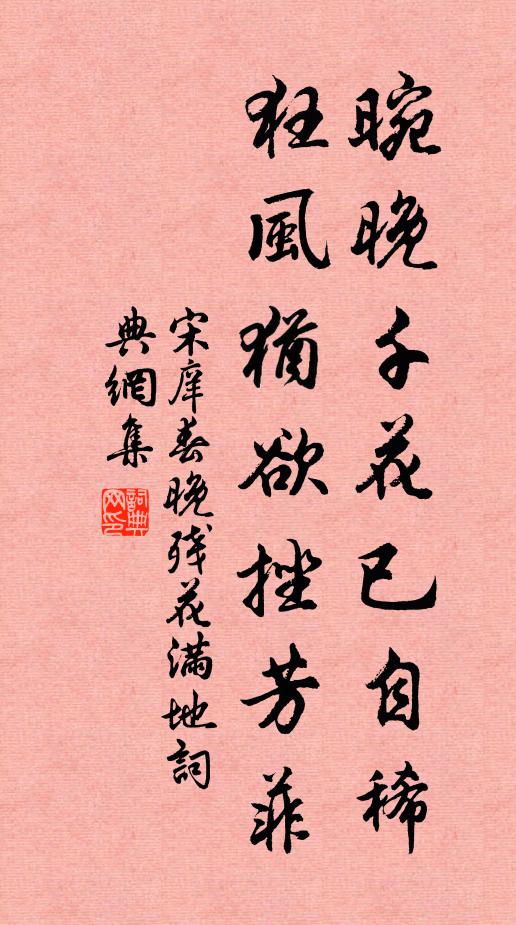 晼晚千花已自稀
狂風猶欲挫芳菲
宋庠春晚殘花滿地詞
典網集
詞典網印